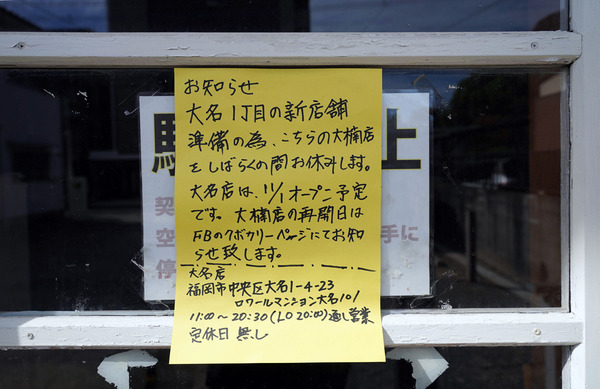 お知らせ
大名1丁目の新店舗
準備の為、こちらの大楠店
をしばらくの間お休みします。
大名店は、11/1オープン予定
です。大楠店の再開日は
FBのクボカリーページにてお知
らせ致します。
大名店
福岡市中央区大名1-4-23
ロワールマンション大名101
11:00～20:30(LO 20:00)通し営業
定休日 無し
駐
止
契
空
手に
停